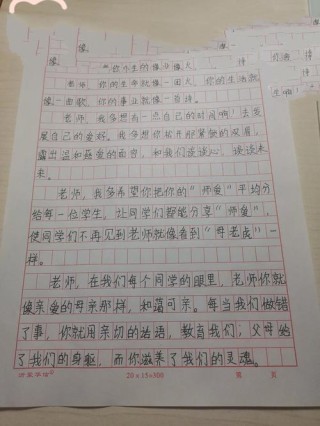 像
像
你满
诗
"你小生的像
像火
诗
老师，你的生命就像一团火，你的生活就
像一曲歌，你的事业就像一首诗。
老师，我多想有一点自己的时间啊！去发
展自己的爱好。我多想你放开那紧皱的双眉，
露出温和慈爱的面容，和我们谈谈心，谈谈未
来。
老师，我多希望你把你的"师爱"平均分
给每一位学生，让同学们都能分享"师爱"，
使同学们不再见到老师就像看到"母老虎"一
样。
老师，在我们每个同学的眼里，老师你就
像亲爱的母亲那样，和蔼可亲。每当我们做错
了事，你就用亲切的话语，教育我们；父母给
了我们的身躯，而你滋养了我们的灵魂。
20×15=300
第 页